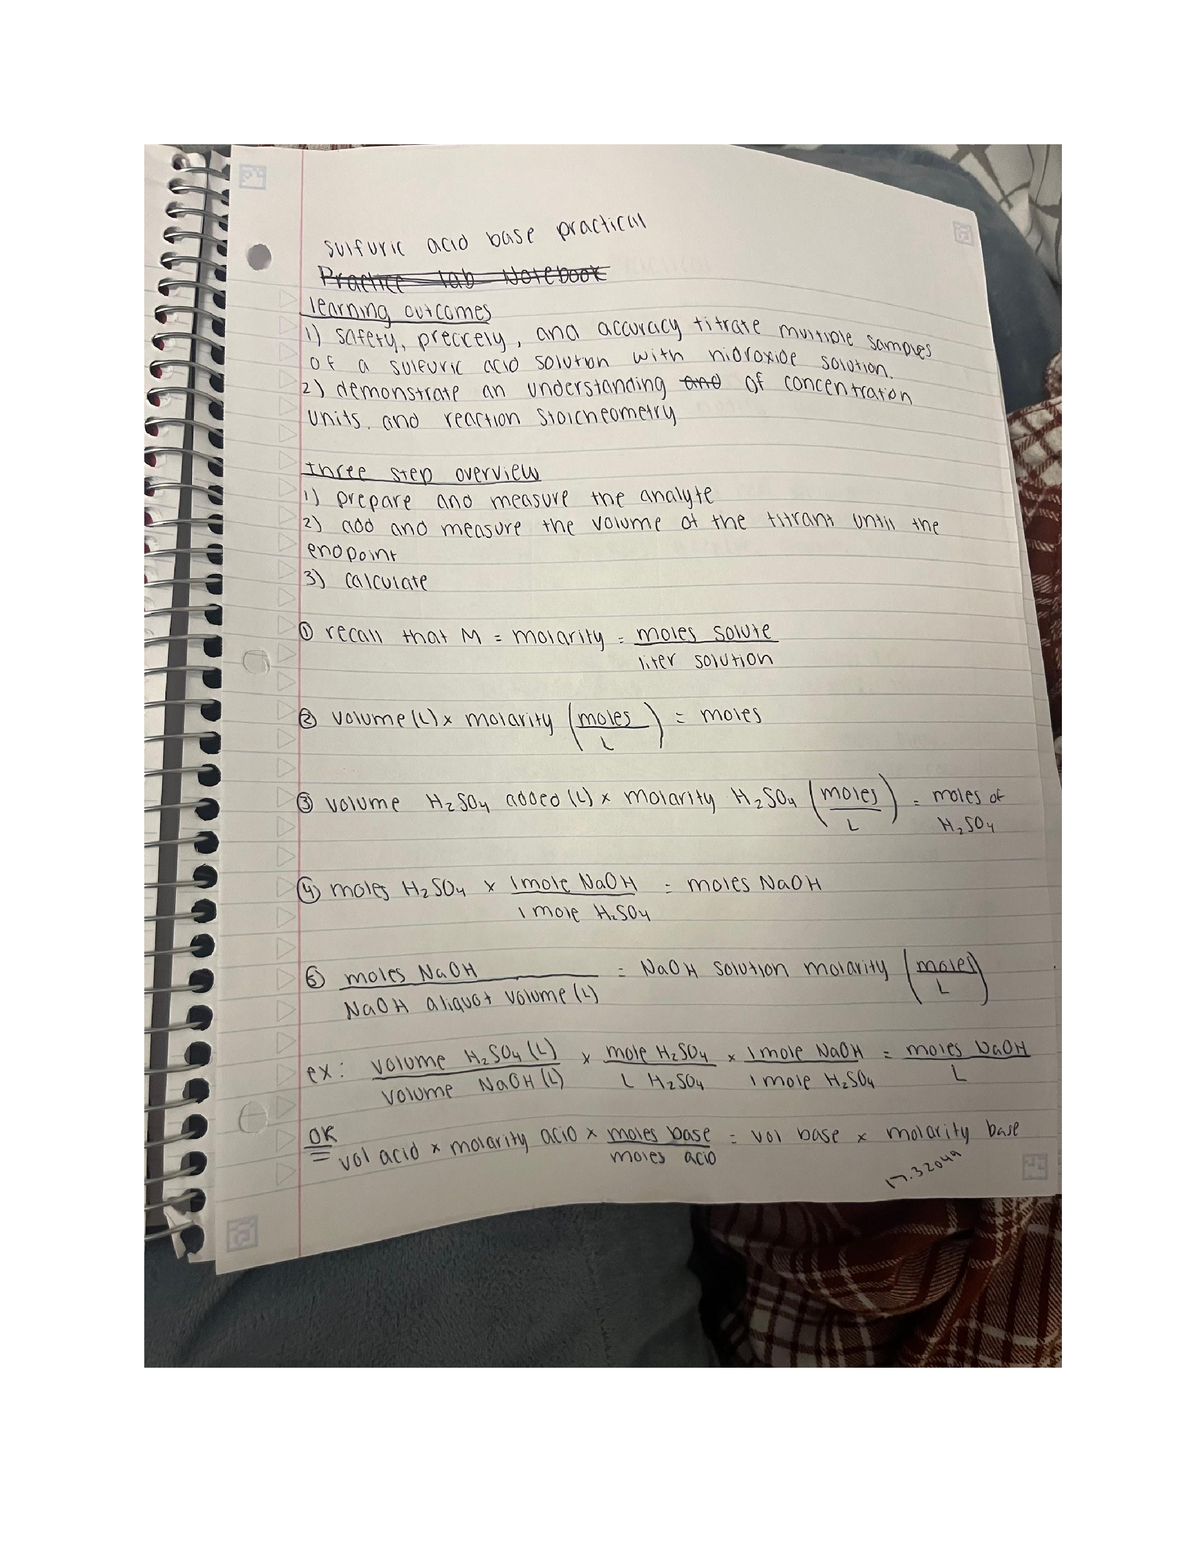 sulfuric acid base practical
Practice lab Notebook
learning outcomes
1) safety, precicely, and accuracy titrate multiple samples
of a sulfuric acid solution with hidroxide solution.
2) demonstrate an understanding and of concentration
units, and reaction stoicheometry
three step overview
1) prepare and measure the analyte
2) add and measure the volume of the titrant until the
endpoint
3) calculate
① recall that M = molarity = moles solute
liter solution
② volume (L) x molarity (moles) = moles
L
③ volume H₂SO₄ added (L) x molarity H₂SO₄ (moles) = moles of
L H₂SO₄
④ moles H₂SO₄ x 1 mole NaOH = moles NaOH
1 mole H₂SO₄
⑤ moles NaOH = NaOH solution molarity (moles)
NaOH aliquot volume (L) L
ex: volume H₂SO₄ (L) x mole H₂SO₄ x 1 mole NaOH = moles NaOH
volume NaOH (L) L H₂SO₄ 1 mole H₂SO₄ L
OR
vol acid x molarity acid x moles base = vol base x molarity base
moles acid
17.32049